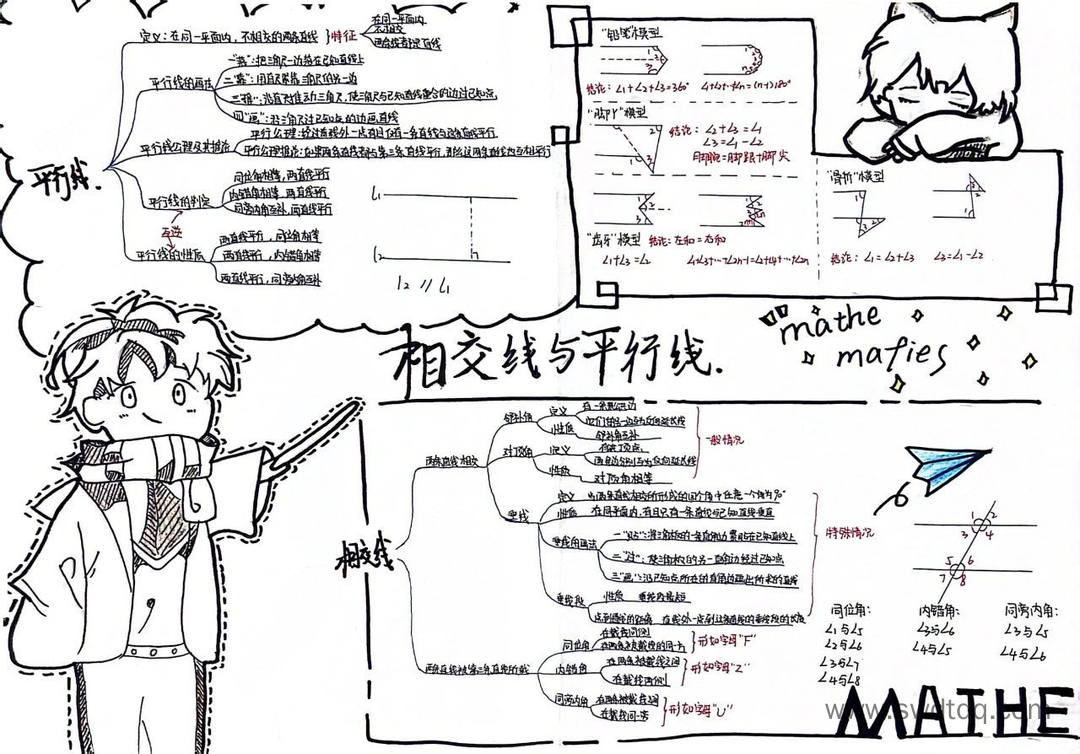 平行线.
定义：在同一平面内，不相交的两条直线
特征
在同一平面内
不相交
两条线都是直线
平行线的画法
一“落”：把三角尺一边落在已知直线上
二“靠”：用直尺紧靠三角尺的另一边
三“推”：沿直尺推动三角尺，使三角尺与已知直线重合的边过已知点
四“画”：沿三角尺过已知点的边画直线
平行线公理及其推论
平行公理：经过直线外一点有且仅有一条直线与这条直线平行
平行公理推论：如果两条直线都与第三条直线平行，那么这两条直线也互相平行
平行线的判定
同位角相等，两直线平行
内错角相等，两直线平行
同旁内角互补，两直线平行
互逆
平行线的性质
两直线平行，同位角相等
两直线平行，内错角相等
两直线平行，同旁内角互补
l₁
l₂
l₂ // l₁
“铅笔”模型
1
2
3
结论：∠1+∠2+∠3=360°
“脚丫”模型
1
2
3
结论：∠2+∠3=∠1
∠3=∠1-∠2
“锯牙”模型
结论：左和=右和
∠1+∠3=∠2
“骨折”模型
1
2
3
结论：∠1=∠2+∠3
∠3=∠1-∠2
mathe
mafies
相交线与平行线.
相交线
两条直线相交
邻补角
定义
有一条公共边
它们的另一边互为反向延长线
性质
邻补角互补
对顶角
定义
有公共顶点
两边分别互为反向延长线
性质
对顶角相等
一般情况
垂线
定义
当两条直线相交所形成的四个角中任意一个角为90°
性质
在同一平面内，有且只有一条直线与已知直线垂直
垂线的画法
一“贴”：将三角板的一条直角边紧贴在已知直线上
二“过”：使三角板的另一直角边经过已知点
三“画”：沿已知点所在的直角边画出所求的直线
垂线段
性质
垂线段最短
点到直线的距离
直线外一点到这条直线的垂线段的长度
特殊情况
两条直线被第三条直线所截
同位角
在截线同侧
在两条被截线的同一方
形如字母“F”
内错角
在两条被截线之间
在截线两侧
形如字母“Z”
同旁内角
在两条被截线之间
在截线同一旁
形如字母“U”
1 2
3 4
5 6
7 8
同位角：
∠1与∠5
∠2与∠6
∠3与∠7
∠4与∠8
内错角：
∠3与∠6
∠4与∠5
同旁内角：
∠3与∠5
∠4与∠6
MATHE